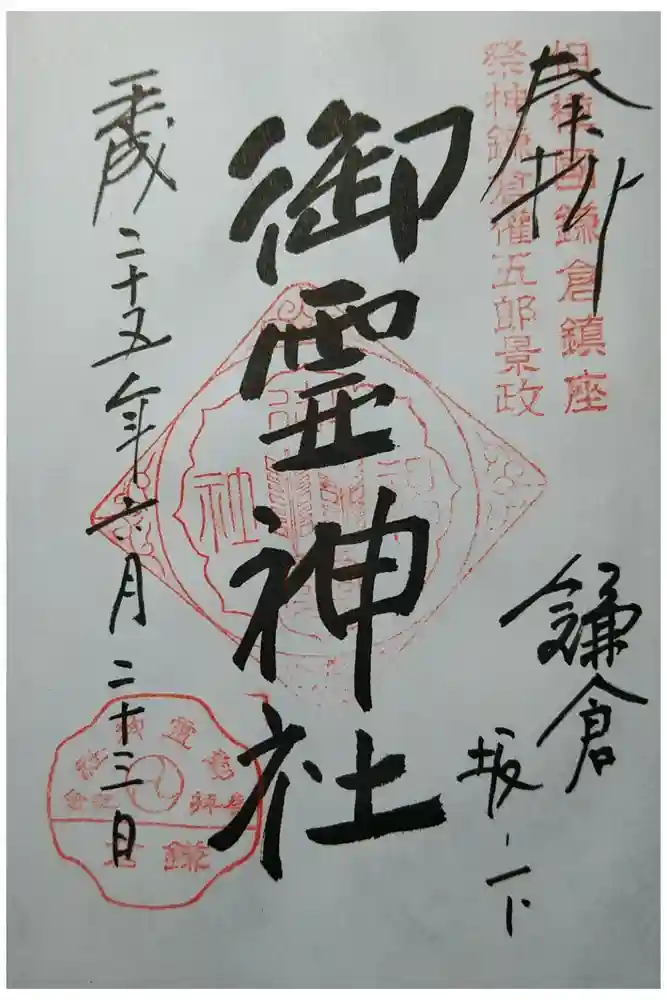 奉拝
相模國鎌倉鎮座
祭神鎌倉權五郎景政
鎌倉
坂ノ下
御霊神社
平成二十五年六月二十三日
御霊神社
参拝記念
鎌倉